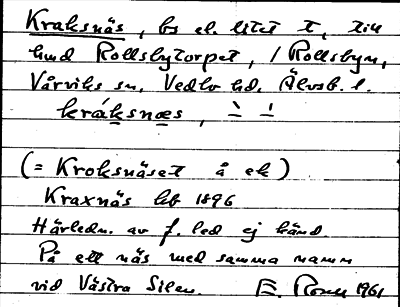 Kraksnäs, bs el. litet t, till
hmd Rollsbytorpet, / Rollsbyn,
Vårviks sn, Vedbo hd, Älvsb. l.
kráksnæs, ˋ ˊ
(= Kroksnäset å ek)
Kraxnäs hb 1896
Härledn. av f. led ej känd
På ett näs med samma namn
vid Västra Silen. E. 1961